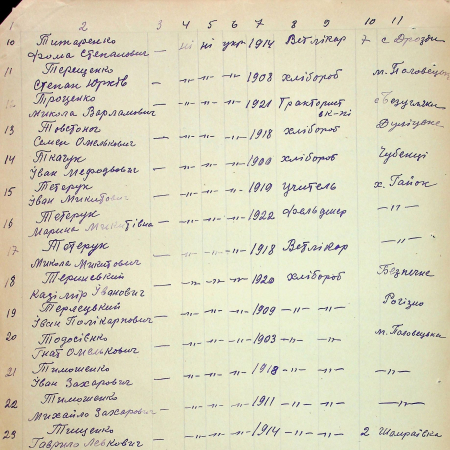 1 2 3 4 5 6 7 8 9 10 11
10 Титаренко — ні ні укр. 1914 Ветлікар 7 с. Дрозди
Фома Степанович
11 Терещенко — -"- -"- -"- 1908 хлібороб
Степан Юхтів
Троценко — -"- -"- -"- 1921 Тракторист
Микола Варламович
13 Товстоног — -"- -"- -"- 1918 хлібороб
Семен Омелькович
14 Ткачук — -"- -"- -"- 1900 хлібороб Чубенці
Іван Мефодьович
15 Тетерук — -"- -"- -"- 1919 учитель х. Гайок
Іван Микитович
16 Тетерук — -"- -"- -"- 1922 фельдшер -"-
Марина Микитівна
17 Тетерук — -"- -"- -"- 1918 Ветлікар -"-
Микола Микитович
18 — -"- -"- -"- 1920 хлібороб Безпечне
Казімір Іванович
19 — -"- -"- -"- 1909 -"- -"- Рогізно
Іван Полікарпович
20 Тодосієнко — -"- -"- -"- 1903 -"- -"-
Гнат Омелькович
21 Тимошенко — -"- -"- -"- 1918 -"- -"- -"-
Іван Захарович
22 Тимошенко — -"- -"- -"- 1911 -"- -"- -"-
Михайло Захарович
23 Тищенко — -"- -"- -"- 1914 -"- -"- 2 Шамраївка
Гаврило Левкович